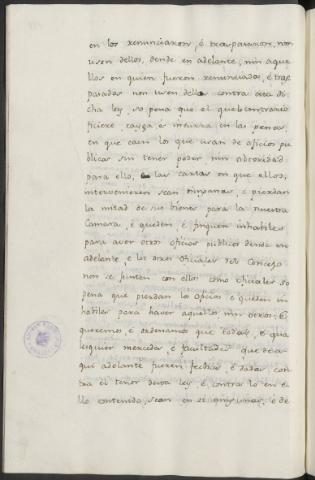 en los renunciaron, é traspasaron, non
usen dellos, dende en adelante, nin aque
llos en quien fueron renunciados, é tras
pasados non usen dello contra esta di
cha ley, so pena que el que lo contrario
ficiere, cayga, é incurra, en las penas,
en que caen los que usan de oficios pu
blicos sin tener poder nin abtoridad
para ello, las cartas en que ellos,
intervenieren sean ningunas, é pierdan
la mitad de sus bienes para la nuestra
Camara, é queden, é finquen inhabiles
para aver otros oficios publicos dende en
adelante, é los otros oficiales del Concejo
non se junten con ellos como oficiales so
pena que pierdan los oficios, é queden in
habiles para haver aquellos nin otros: É
queremos, é ordenamos que todas, é qua
lesquier mercedes, é facultades que de a
qui adelante fueren fechas, é dadas, con
tra el tenor desta ley, é contra lo en e
llo contenido, sean en sí ningunas, é de